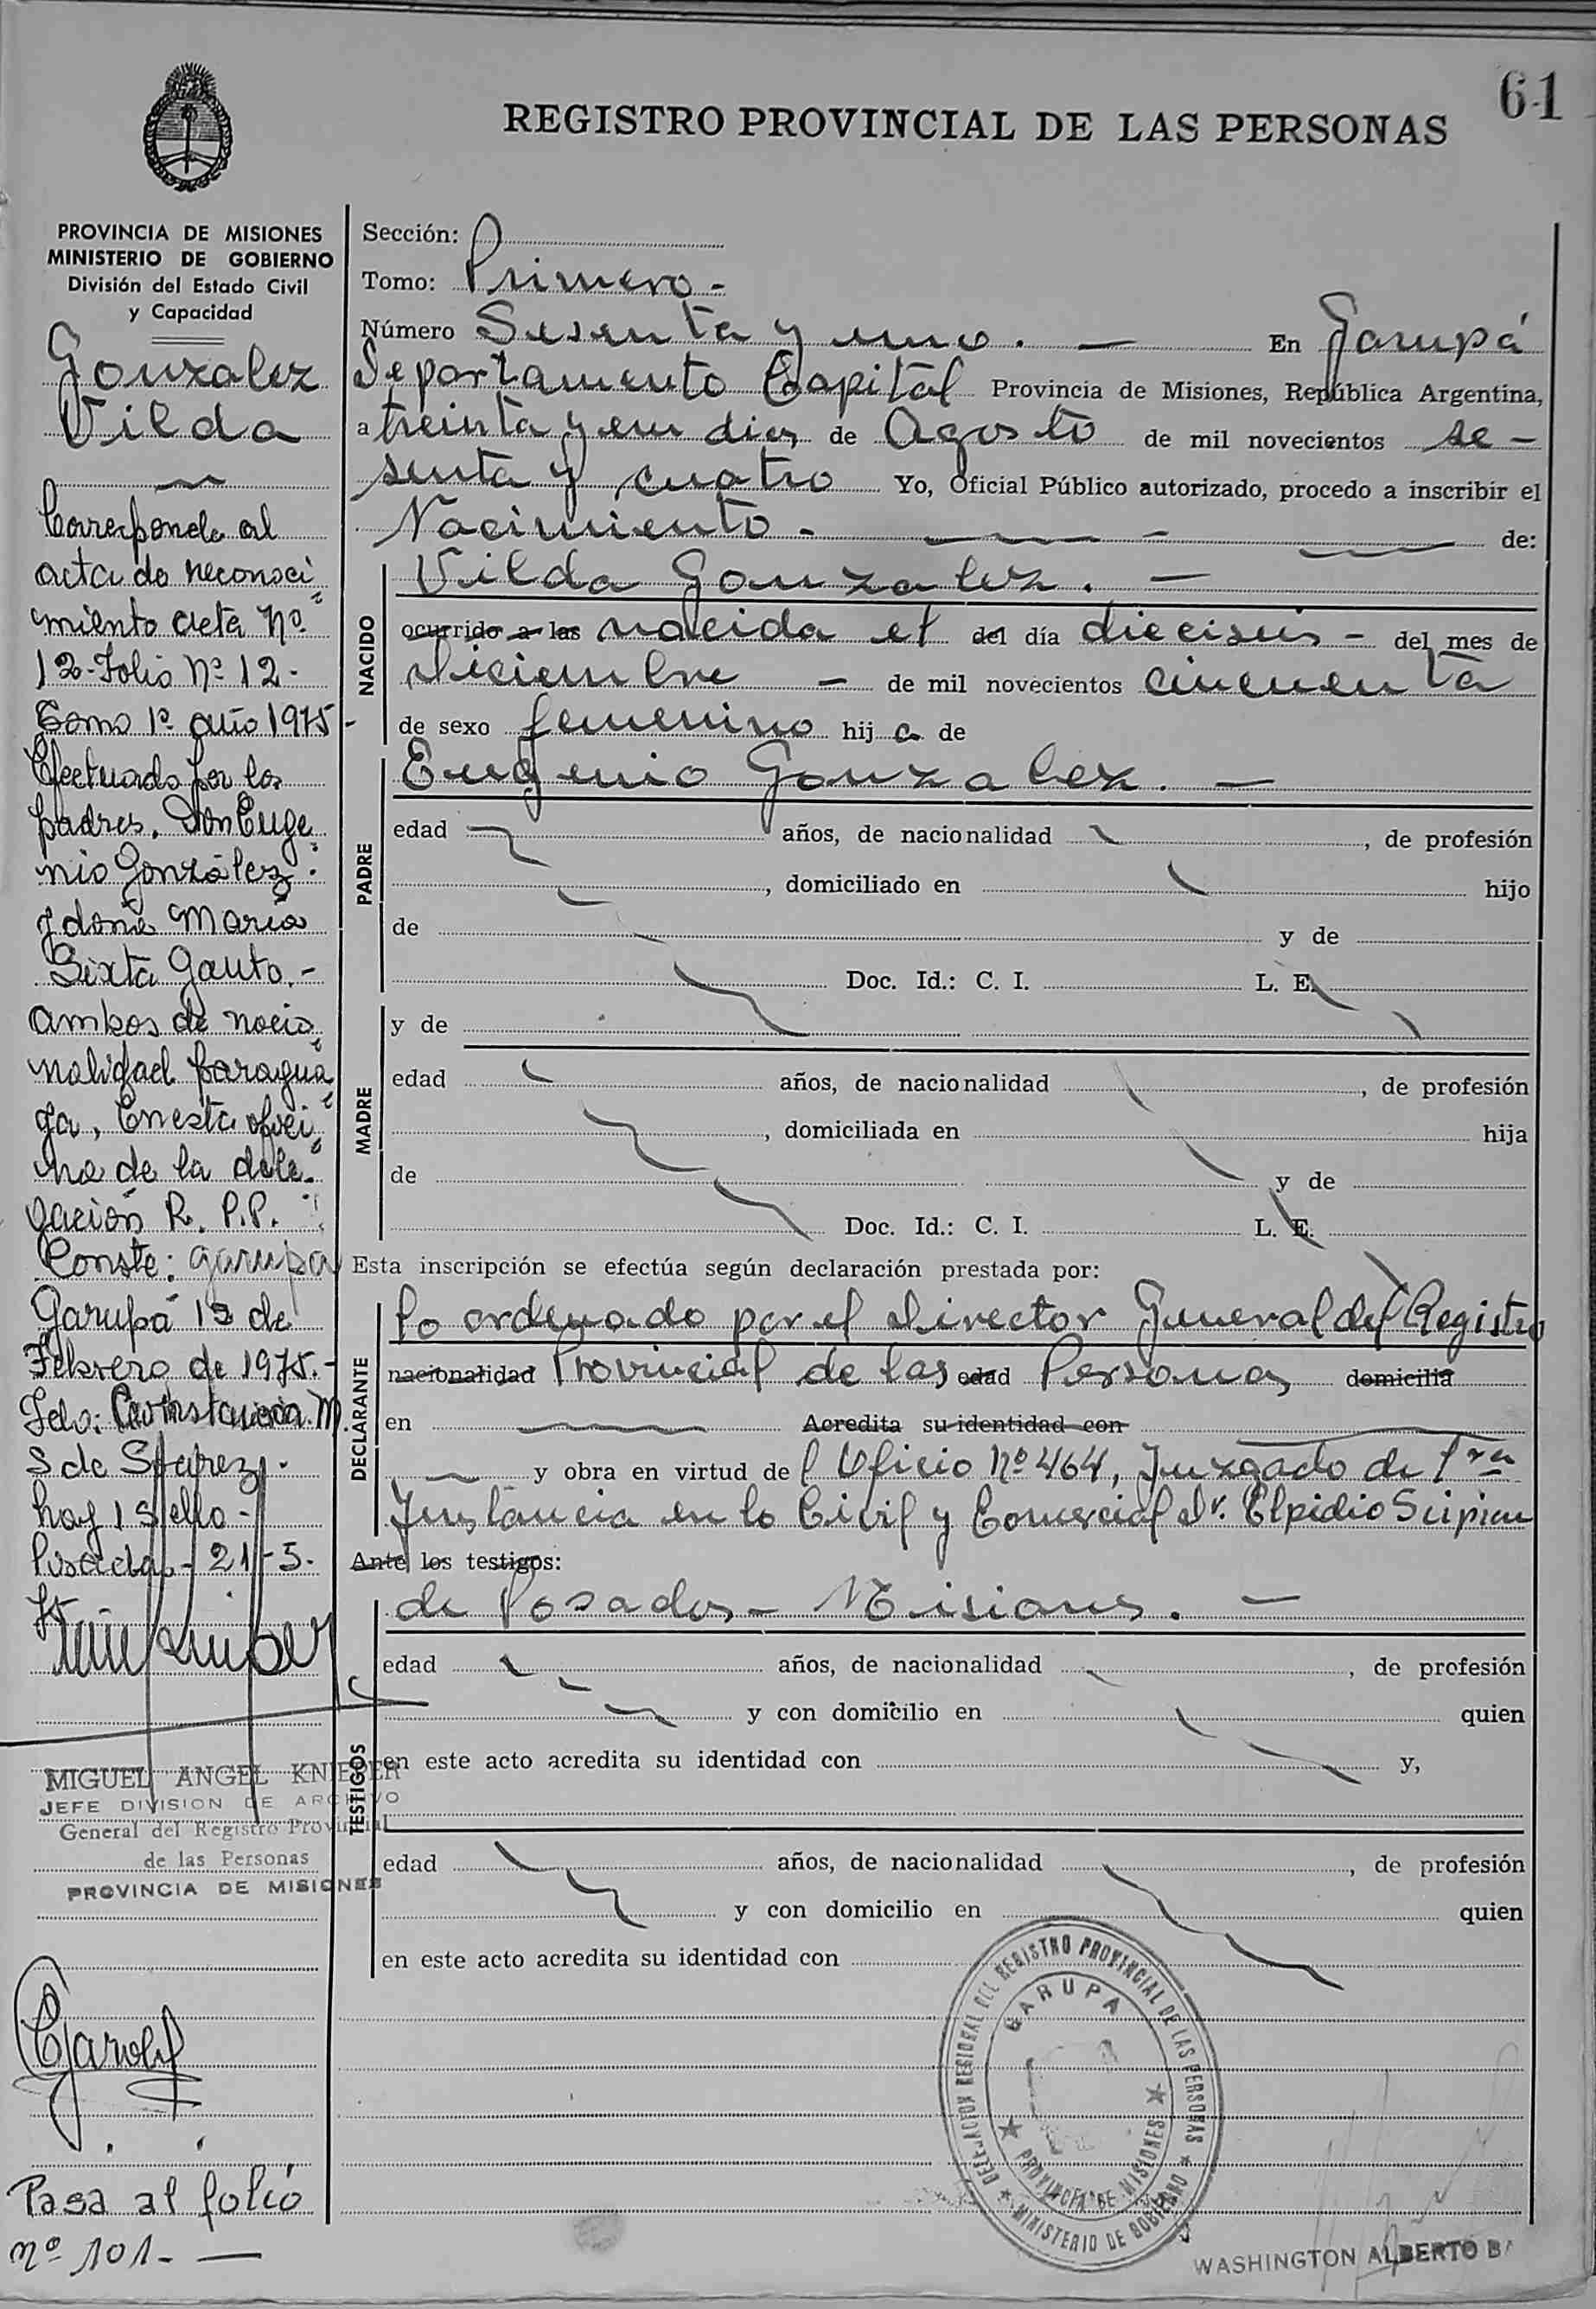 61
REGISTRO PROVINCIAL DE LAS PERSONAS
PROVINCIA DE MISIONES
MINISTERIO DE GOBIERNO
División del Estado Civil
y Capacidad
Gonzalez
Vilda
Corresponde al
acta de reconoci
miento acta Nº
12-Folio Nº 12-
Tomo 1º año 1975-
Efectuado por los
padres, Don Euge
nio González.
y doña María
Sixta Gauto.-
ambos de nacio
nalidad paragua
ya, En esta ofici
na de la dele-
gación R. P.P.
Conste: garupa
Garupá 13 de
Febrero de 1975.-
Fdo: M.
S de
hay 1 Sello-
Posadas-21-5-
MIGUEL ANGEL KNIEPER
JEFE DIVISION DE ARCHIVO
General del Registro Provincial
de las Personas
PROVINCIA DE MISIONES
Pasa al folio
nº 101- —
Sección:
Tomo: Primero-
Número Sesenta y uno. — En Garupá
Departamento Capital Provincia de Misiones, República Argentina,
a treinta y un dias de Agosto de mil novecientos se-
senta y cuatro Yo, Oficial Público autorizado, procedo a inscribir el
Nacimiento- de:
NACIDO
Vilda Gonzalez. —
ocurrido a las nacida el del día dieciseis - del mes de
diciembre - de mil novecientos cincuenta
de sexo femenino hij a de
PADRE
Eugenio Gonzalez. —
edad años, de nacionalidad , de profesión
, domiciliado en hijo
de y de
Doc. Id.: C. I. L. E.
MADRE
y de
edad años, de nacionalidad , de profesión
, domiciliada en hija
de y de
Doc. Id.: C. I. L. E.
Esta inscripción se efectúa según declaración prestada por:
DECLARANTE
lo ordenado por el Director General del Registro
nacionalidad Provincial de las edad Personas domicilia
en Acredita su identidad con
y obra en virtud de l Oficio Nº 464, Juzgado de 1ra
Instancia en lo Civil y Comercial Dr. Elpidio
Ante los testigos:
de Posadas- Misiones. —
TESTIGOS
edad años, de nacionalidad , de profesión
y con domicilio en quien
en este acto acredita su identidad con y,
edad años, de nacionalidad , de profesión
y con domicilio en quien
en este acto acredita su identidad con
DELEGACION REGIONAL DEL REGISTRO PROVINCIAL DE LAS PERSONAS
★ MINISTERIO DE GOBIERNO ★
GARUPA
★ PROVINCIA DE MISIONES ★
WASHINGTON ALBERTO